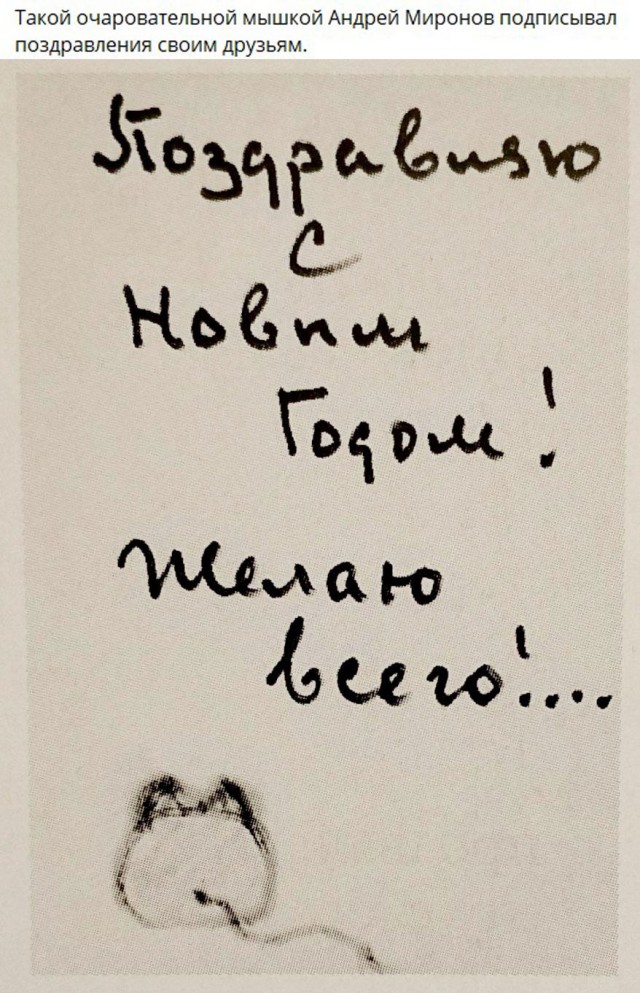 Такой очаровательной мышкой Андрей Миронов подписывал
поздравления своим друзьям.
Поздравляю
с
Новым
Годом!
Желаю
всего!....